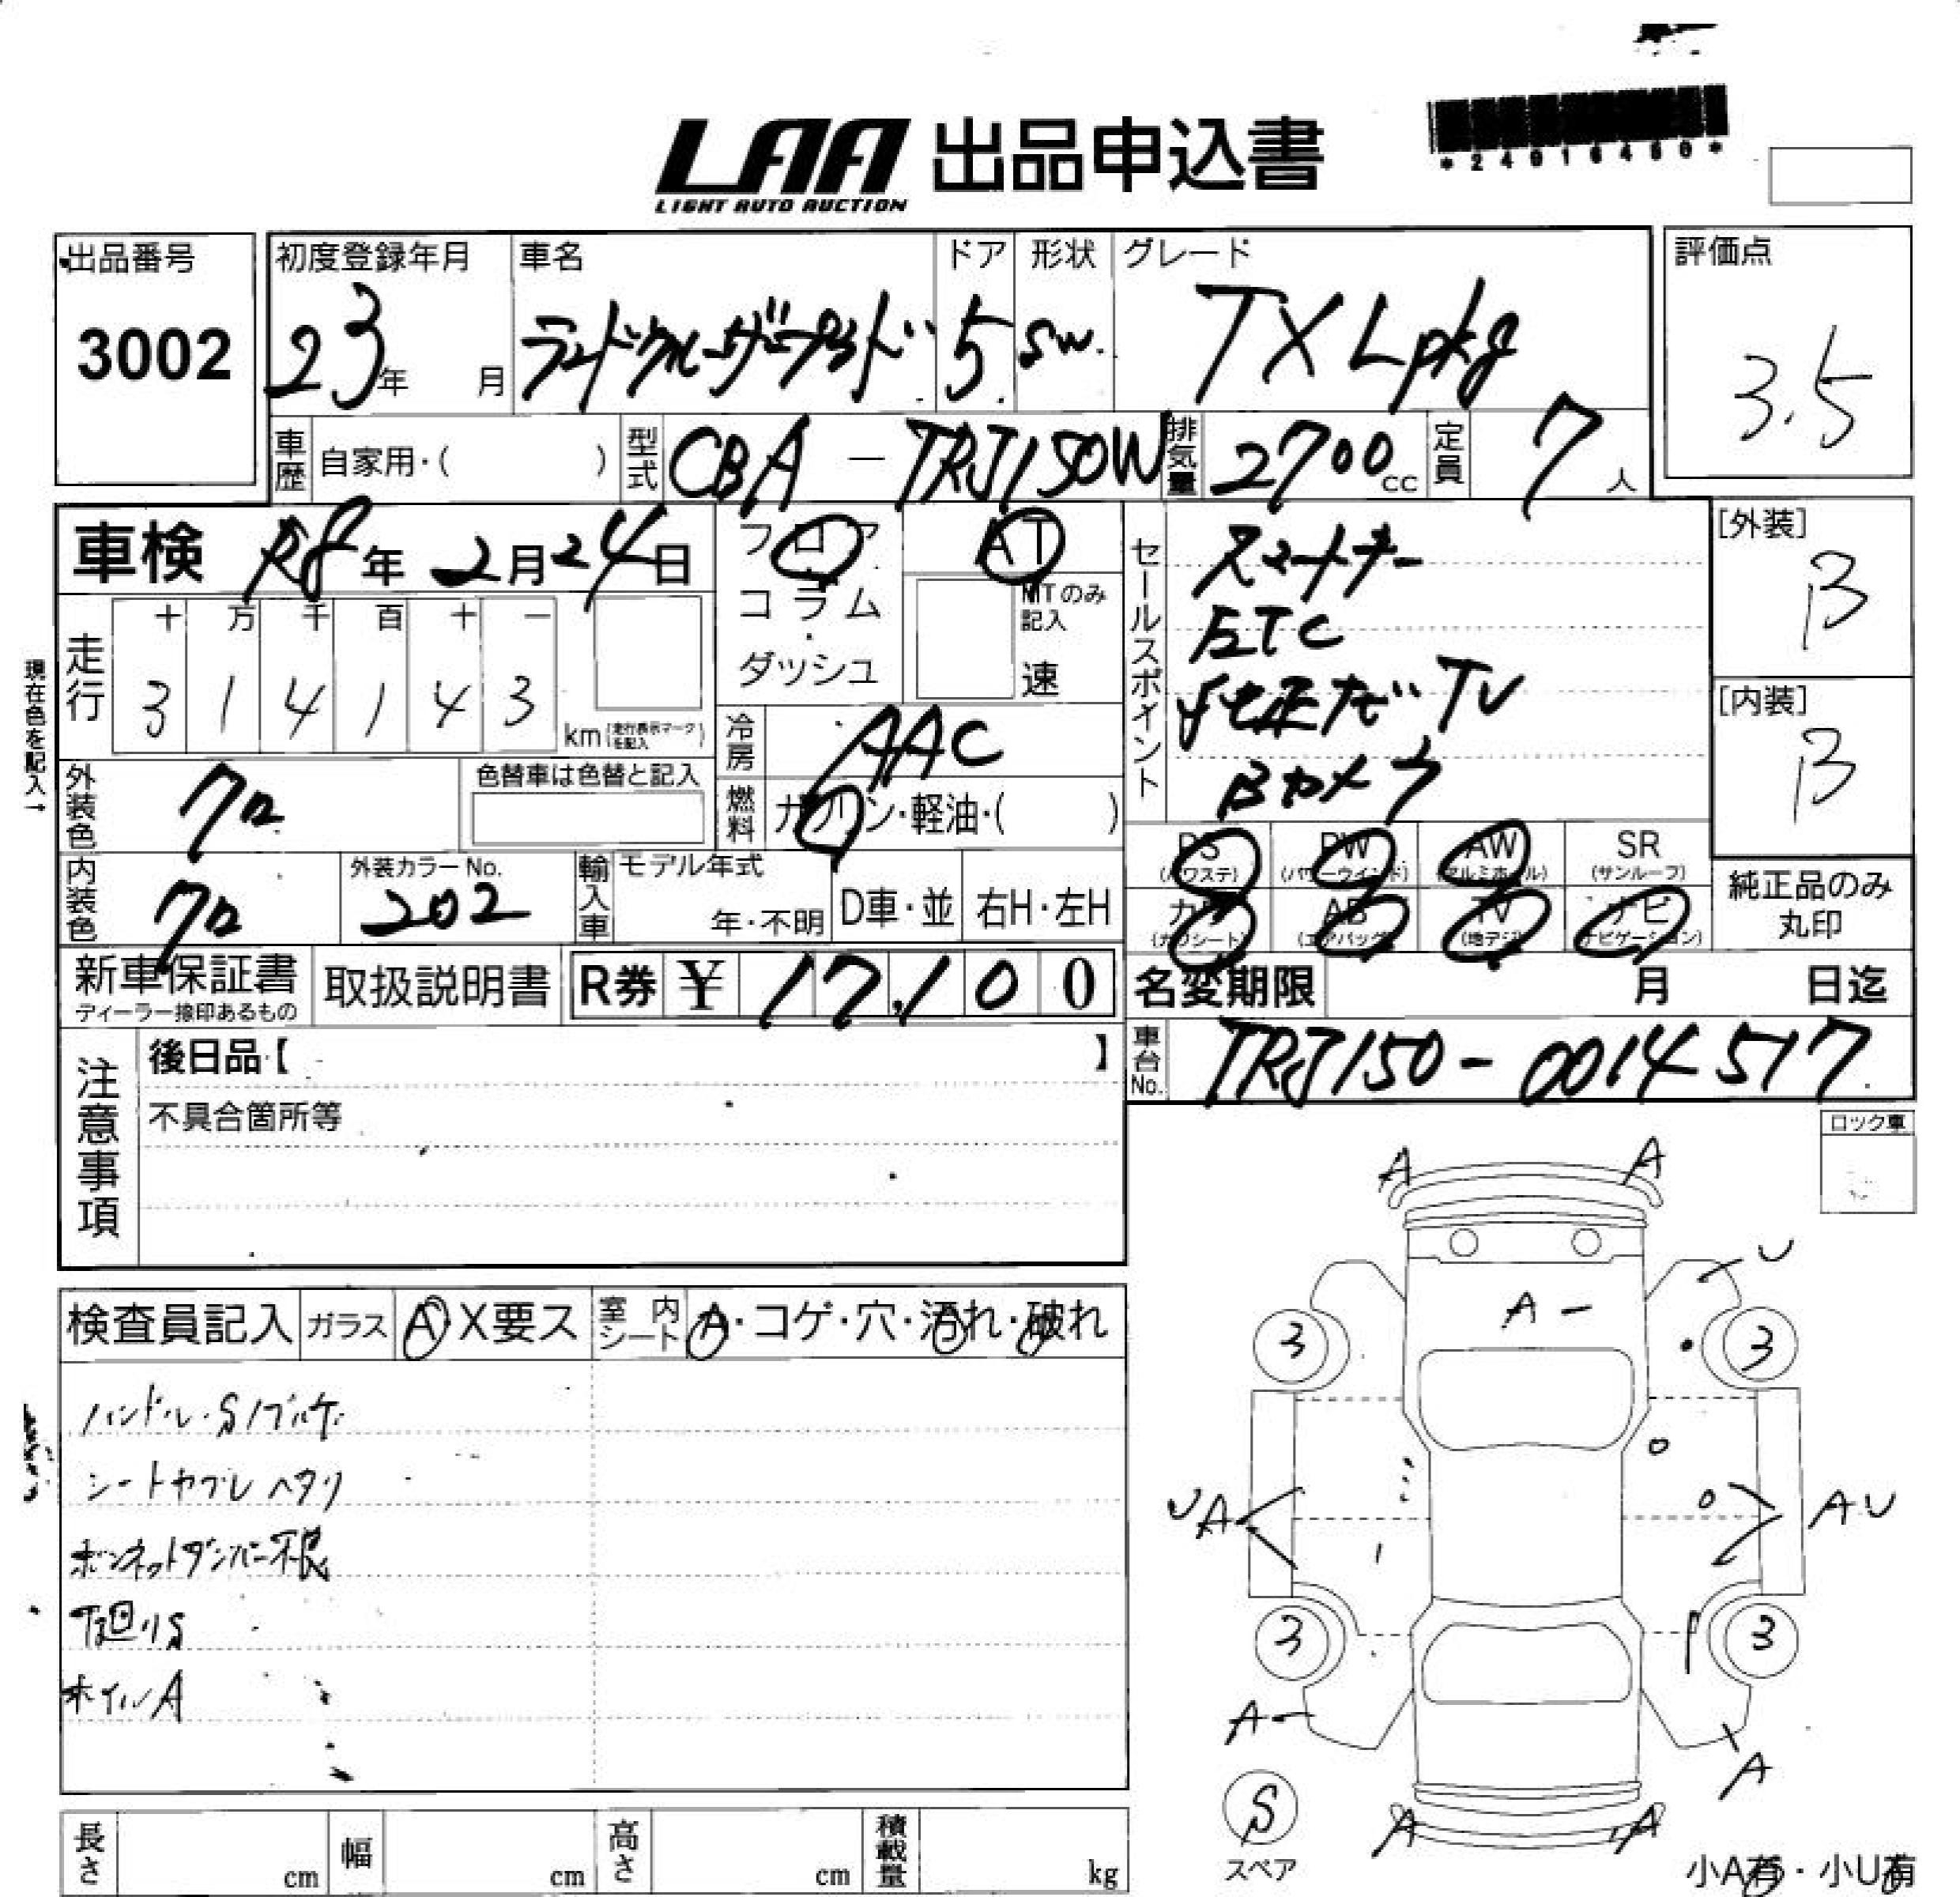 LAA 出品申込書
LIGHT AUTO AUCTION
*24016450*
出品番号
3002
初度登録年月
23年 月
車名
ランドクルーザープラド
ドア
5
形状
SW
グレード
TX Lpkg
評価点
3.5
車歴 自家用・( )
型式 CBA-TRJ150W
排気量 2700cc
定員 7人
車検 R8年2月24日
フロア・コラム・ダッシュ
AT
MTのみ記入
速
走行 十万千百十一
314143 km(走行表示マークを記入)
現在色を記入→
冷房 AAC
燃料 ガソリン・軽油・( )
セールスポイント
スマートキー
ETC
地デジTV
Bカメラ
[外装]
B
[内装]
B
外装色 クロ
色替車は色替と記入
内装色 クロ
外装カラーNo.
202
輸入車 モデル年式
年・不明
D車・並
右H・左H
PS (パワステ)
PW (パワーウインド)
AW (アルミホイール)
SR (サンルーフ)
カワ (カワシート)
AB (エアバッグ)
TV (地デジ)
ナビ (ナビゲーション)
純正品のみ丸印
新車保証書
ディーラー捺印あるもの
取扱説明書
R券 ¥ 17,100
名変期限 月 日迄
車台No. TRJ150-0014517
注意事項
後日品【 】
不具合箇所等
ロック車
検査員記入
ガラス A・X要ス
室内シート A・コゲ・穴・汚れ・破れ
ハンドル・Sノブハゲ
シートヤブレ ヘタリ
ボンネットダンパー不良
下廻りS
ホイルA
A A
U
A-
3 3
UA AU
3 3
A- A
S
スペア
A A
小A有・小U有
長さ cm
幅 cm
高さ cm
積載量 kg